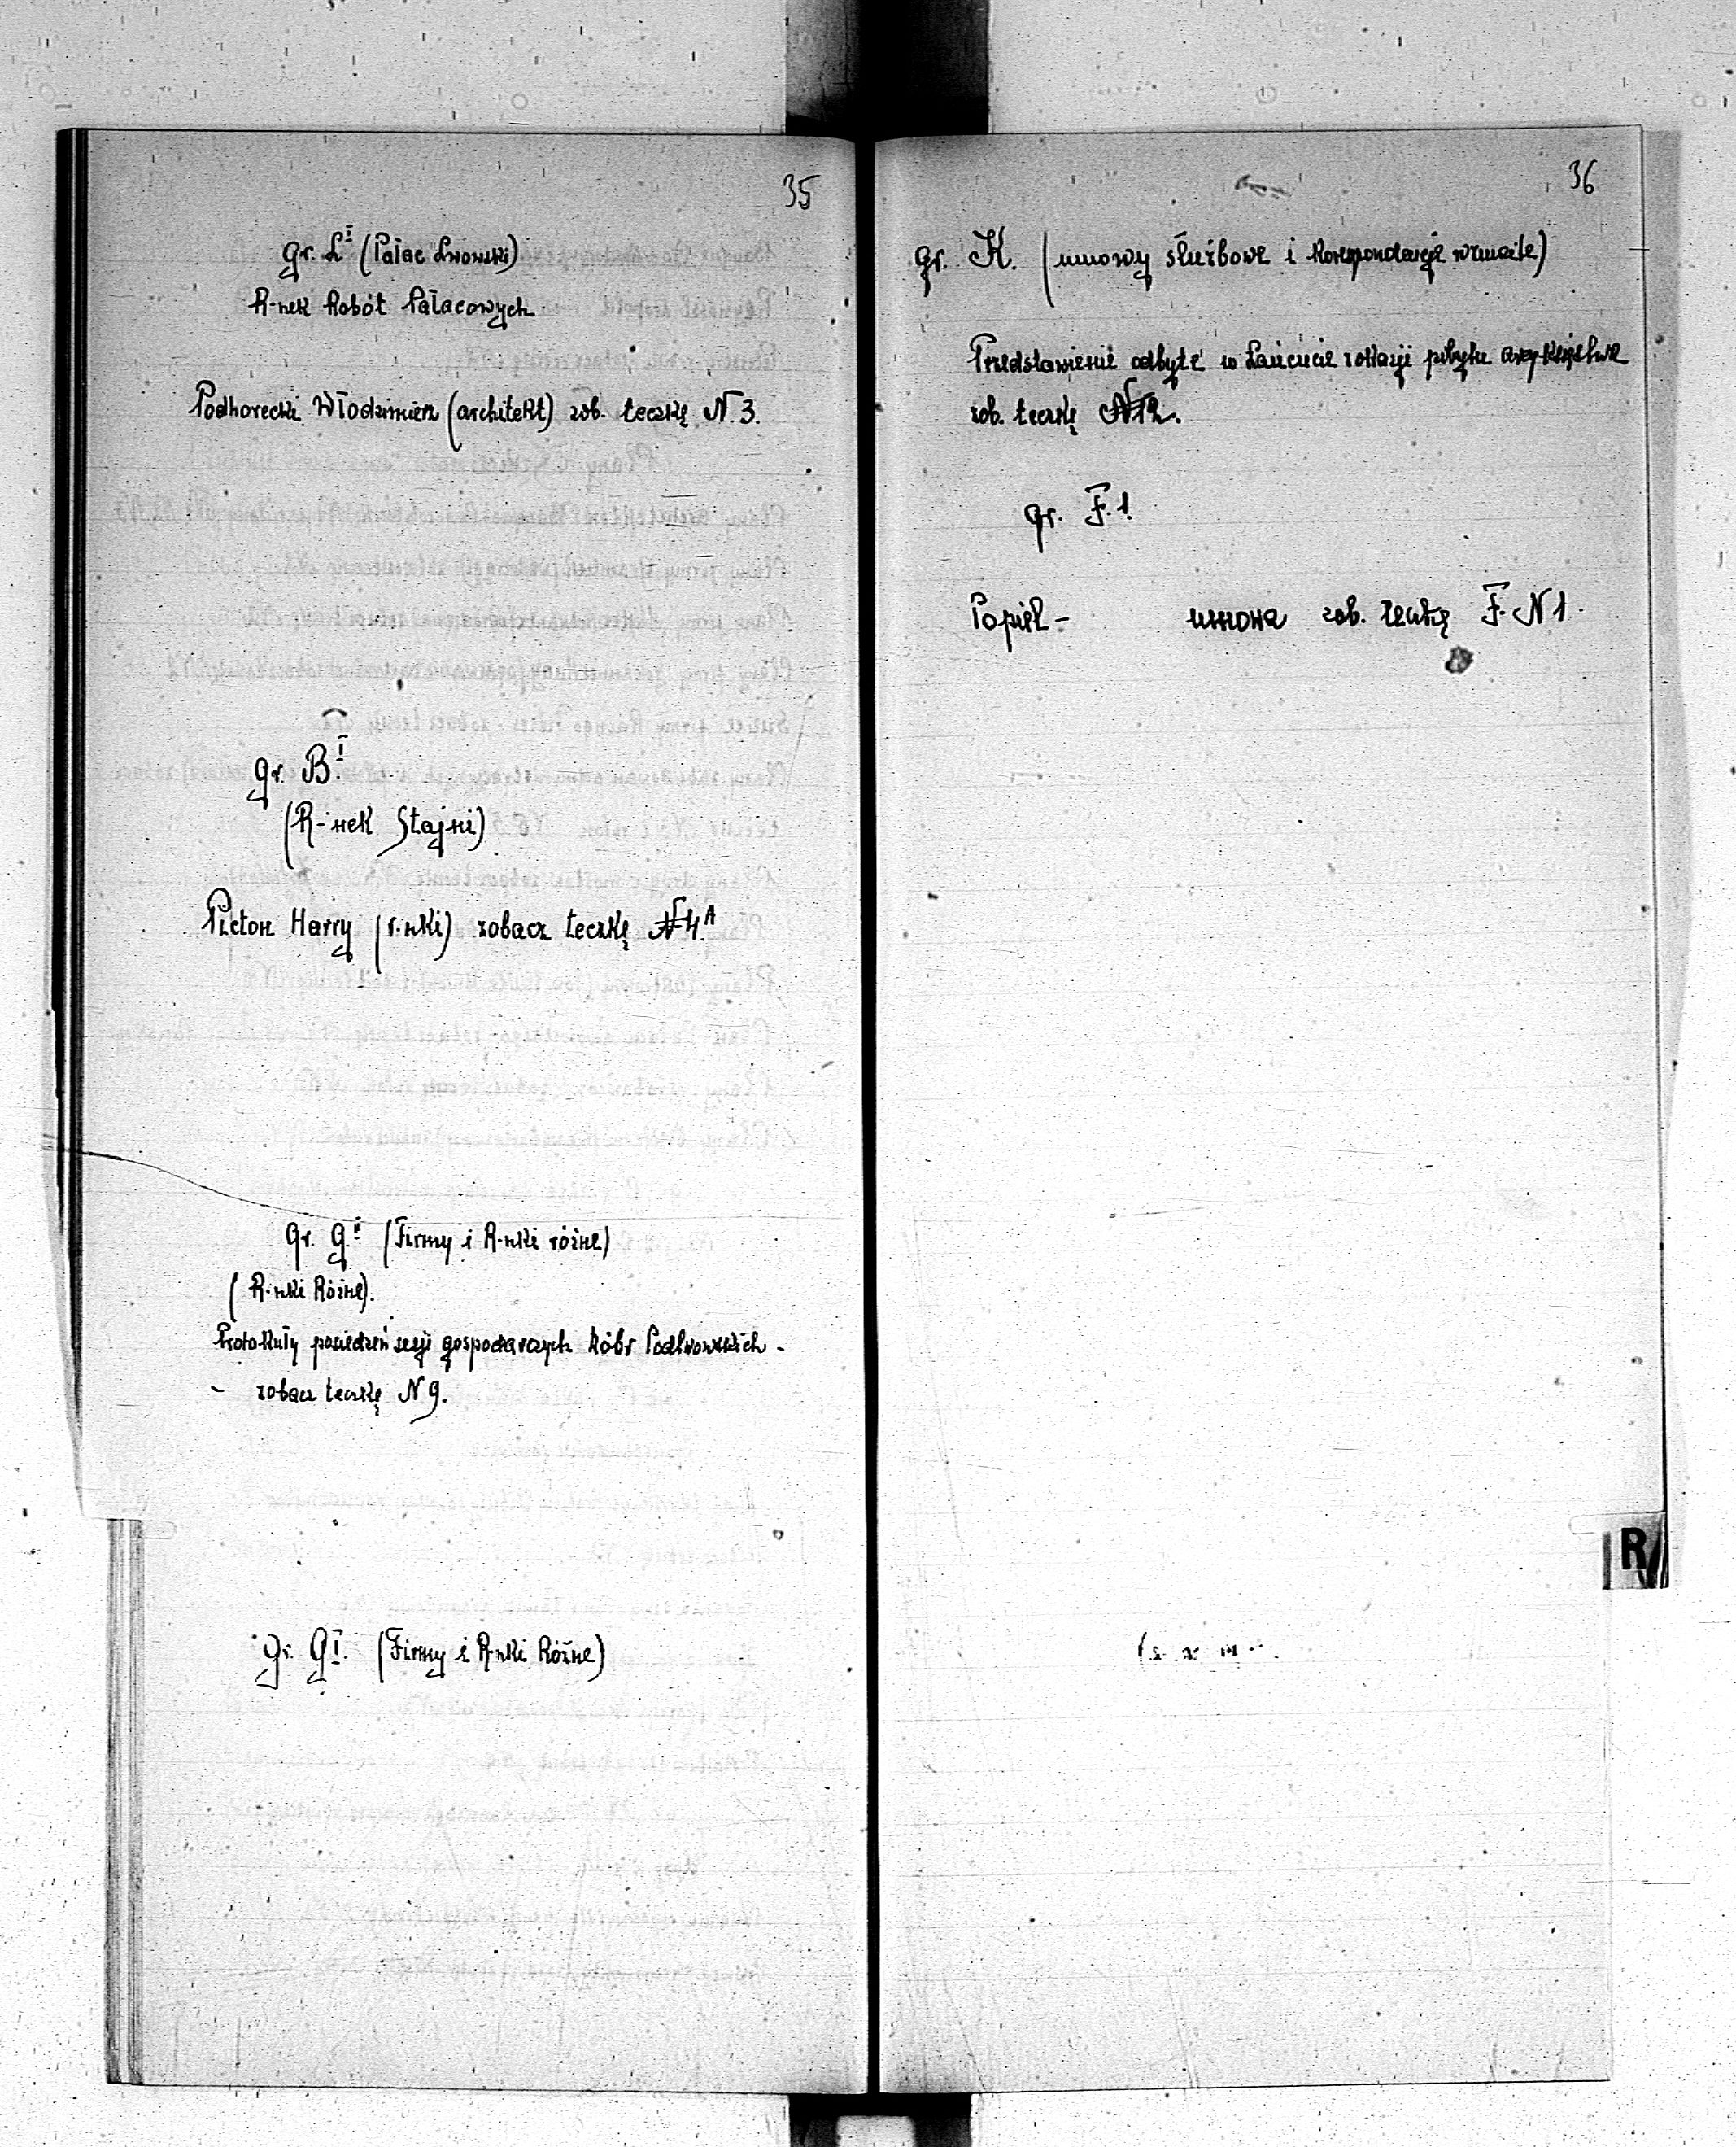 35
gr. Ł^I (Pałac Lwowski)
R-nek Robót Pałacowych
Podhorecki Włodzimierz (architekt) zob. teczkę N. 3.
gr. B^I
(R-nek Stajni)
Picton Harry (r.nki) zobacz teczkę N 4.^A
gr. G.^I (Firmy i R-nki różne)
(R-nki Różne).
Protokuły posiedzeń sesji gospodarczych dóbr Podlwowskich -
- zobacz teczkę N 9.
gr. G^I. (Firmy i R-nki Różne)
36
gr. K. (umowy służbowe i korespondencje rozmaite)
Przedstawienie odbyte w Łańcucie z okazji pobytu arcyksięstwa
zob. teczkę N 12.
gr. F. 1.
Popiel - umowa zob. teczkę F. N 1.
R